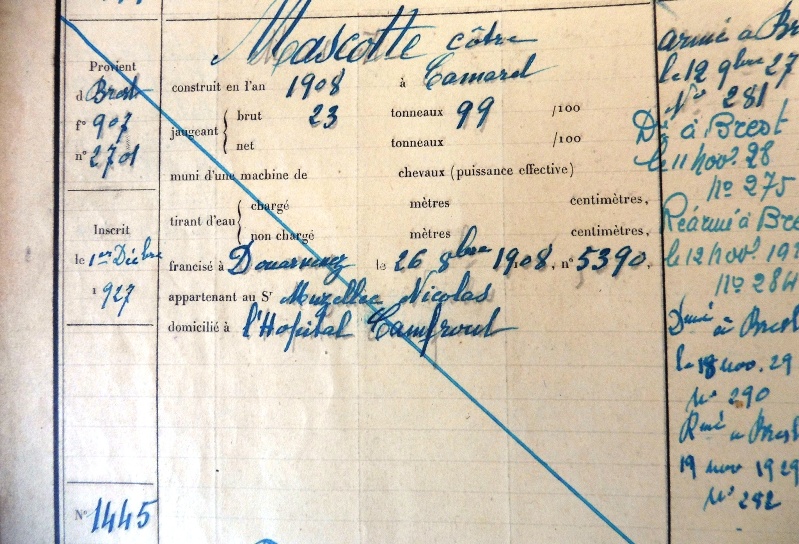 Provient
d Brest
f° 907
n° 2701
Inscrit
le 1er Décbre
1927
N° 1445
Mascotte côtre
construit en l'an 1908 à Camaret
jaugeant { brut 23 tonneaux 99 /100
net tonneaux /100
muni d'une machine de chevaux (puissance effective)
tirant d'eau { chargé mètres centimètres,
non chargé mètres centimètres,
francisé à Douarnenez le 26 8bre 1908, n° 5390,
appartenant au Sr Muzellec Nicolas
domicilié à l'Hopital Camfrout
armé à Br
le 12 9bre 27
N° 281
Dé à Brest
le 11 nov. 28
no 275
Réarmé à Bre
le 12 nov. 192
no 284
Dmé à Brest
le 18 nov. 29
no 290
Rmé à Brest
19 nov 1929
no 292